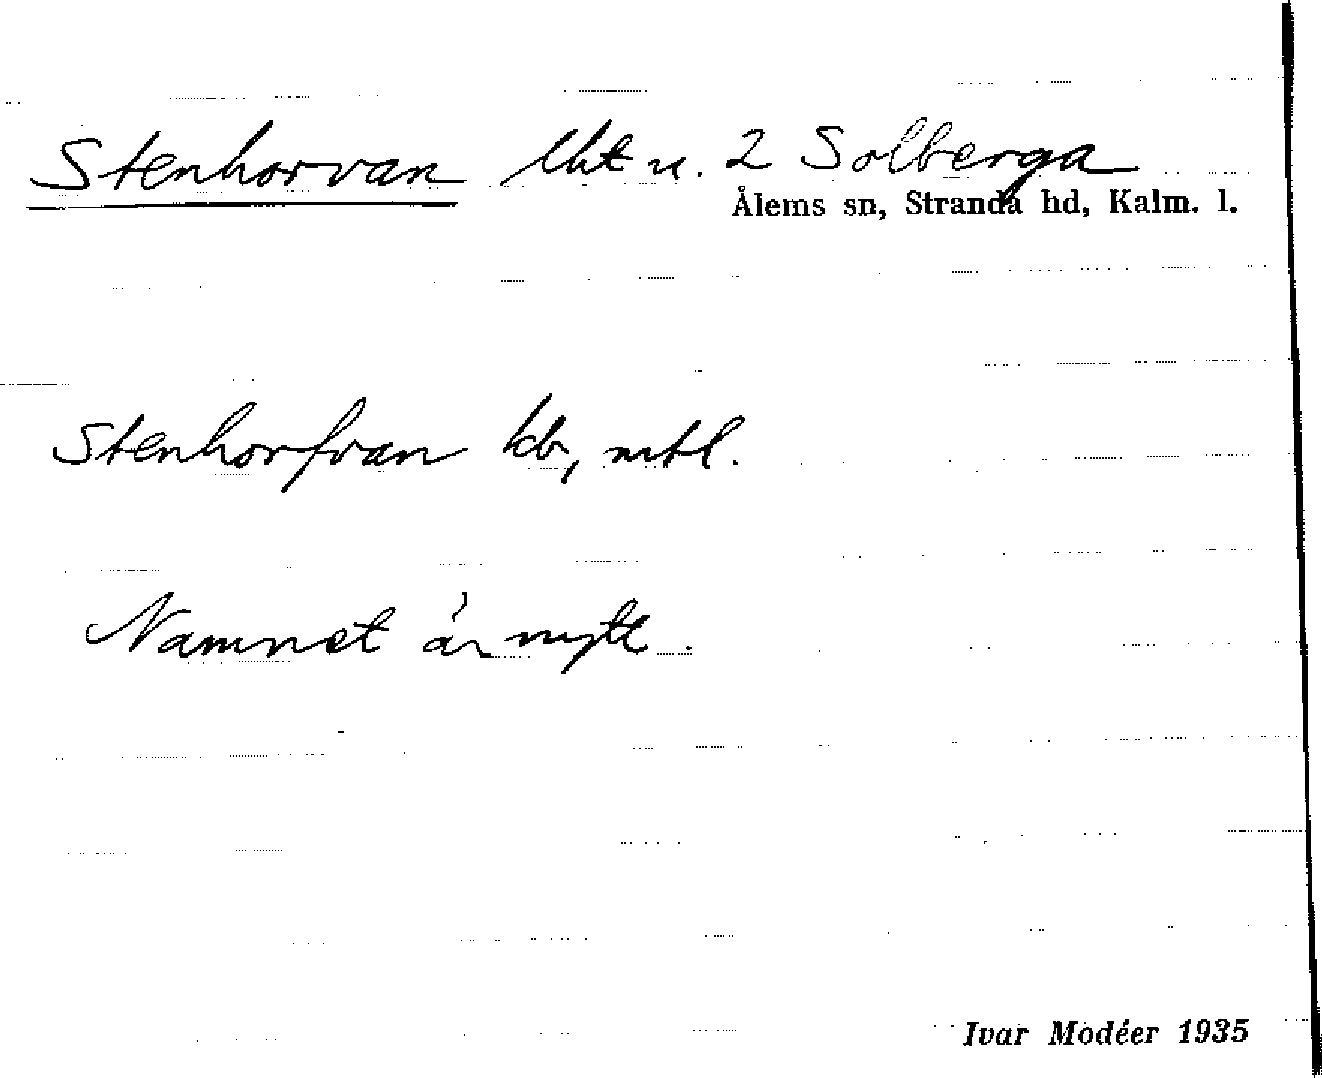 Stenhorvan lht u. 2 Solberga
Ålems sn, Stranda hd, Kalm. l.
Stenhorfvan kb, mtl.
Namnet är nytt.
Ivar Modéer 1935